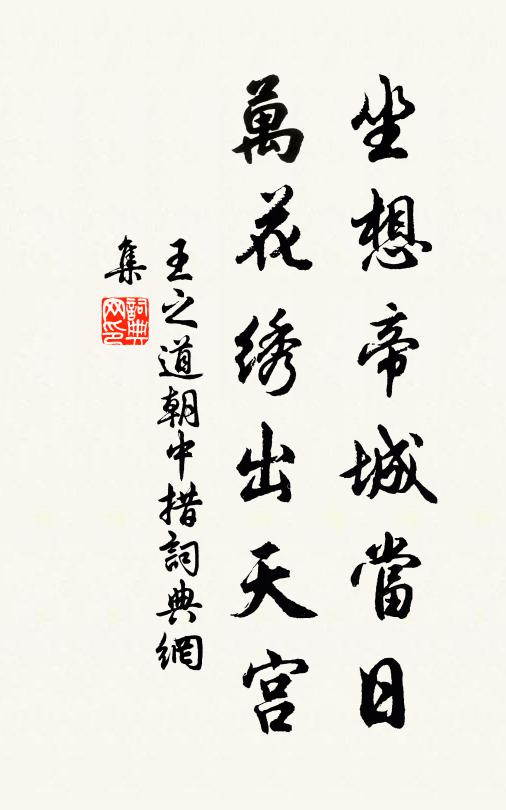 坐想帝城當日
萬花绣出天宫
王之道朝中措詞典網
集
詞典网印